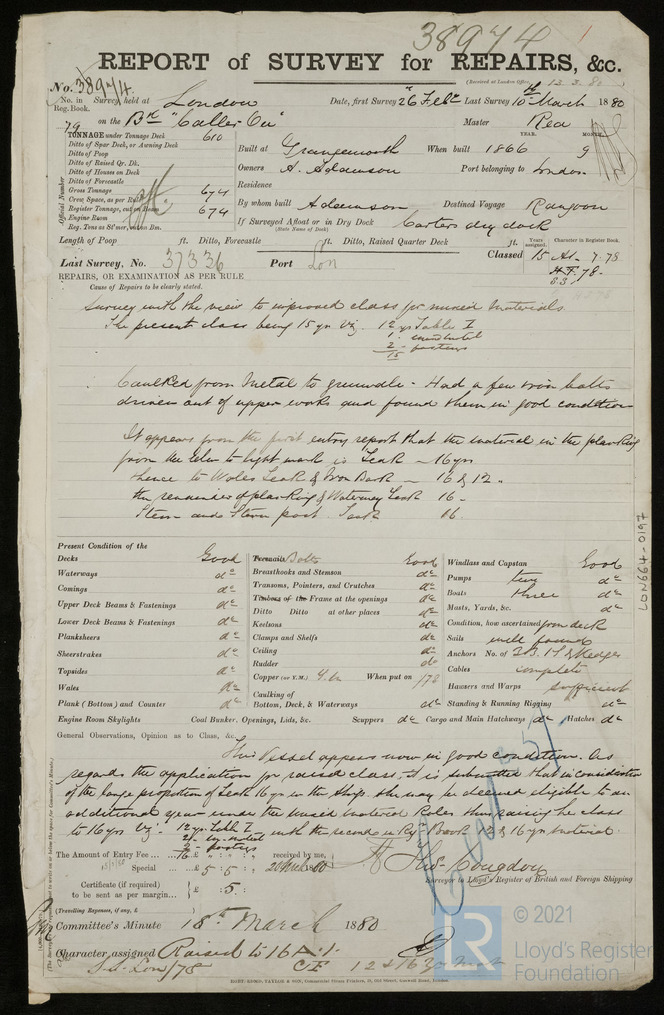 38974
REPORT of SURVEY for REPAIRS, &c.
(Received at London Office, 13.3.80
No. 38974.
No. in Reg. Book. Survey held at London Date, first Survey 26 Feby Last Survey 10th March 1880
79 on the Bk "Caller Ou" Master Rea
TONNAGE under Tonnage Deck 610
YEAR. MONTH.
Ditto of Spar Deck, or Awning Deck
Built at Grangemouth When built 1866 9
Ditto of Poop
Ditto of Raised Qr. Dk.
Owners A. Adamson Port belonging to London
Ditto of Houses on Deck
Ditto of Forecastle
Residence
Gross Tonnage 674
Crew Space, as per Rule
By whom built Adamson Destined Voyage Rangoon
Register Tonnage, cut on Beam 674
Engine Room
If Surveyed Afloat or in Dry Dock Carters dry dock
(State Name of Dock)
Reg. Tons as St'mer, cut on Bm.
Official Number
Length of Poop ft. Ditto, Forecastle ft. Ditto, Raised Quarter Deck ft.
Years assigned. Character in Register Book.
Last Survey, No. 37336 Port Lon Classed 15 A1 - 7.78
REPAIRS, OR EXAMINATION AS PER RULE
H.T. 78.
Cause of Repairs to be clearly stated.
Survey with the view to improved class for mixed Materials
The present class being 15 yrs viz. 12 yrs Table I
1 - mixed matl
2 - fastengs
15
Caulked from Metal to gunwale - Had a few iron bolts
driven out of upper works and found them in good condition
It appears from the first entry report that the material in the planking
from the Keln to light mark is Teak - 16 yrs
thence to Wales Teak & Iron Bark - 16 & 12 "
the remainder of planking & Waterway Teak 16 -
Stem and Stern post Teak 16.
Present Condition of the
Decks Good
Waterways do
Comings do
Upper Deck Beams & Fastenings do
Lower Deck Beams & Fastenings do
Planksheers do
Sheerstrakes do
Topsides do
Wales do
Plank (Bottom) and Counter do
Engine Room Skylights
Treenails Bolts Good
Breasthooks and Stemson do
Transoms, Pointers, and Crutches do
Timbers of the Frame at the openings do
Ditto Ditto at other places do
Keelsons do
Clamps and Shelfs do
Ceiling do
Rudder do
Copper (or Y.M.) Y.m When put on 1/78
Caulking of
Bottom, Deck, & Waterways do
Coal Bunker, Openings, Lids, &c. Scuppers do
Windlass and Capstan Good
Pumps two do
Boats three do
Masts, Yards, &c. do
Condition, how ascertained from deck
Sails well found
Anchors No. of 3 B. 1 S & Kedges
Cables complete
Hawsers and Warps sufficient
Standing & Running Rigging do
Cargo and Main Hatchways do Hatches do
General Observations, Opinion as to Class, &c.
This Vessel appears now in good condition. As
regards the application for raised class, it is submitted that in consideration
of the large proportion of Teak 16 yrs in the Ship, she may be deemed eligible to an
additional year under the mixed material Rules thus raising her class
to 16 yrs viz - 12 yrs Table I with the record in Reg Book 12 & 16 yrs material.
2 - mx matl
2 - fastengs
16
The Amount of Entry Fee ... £ " : " : " received by me,
Special ... £ 5 : 5 : 20 March 80
Certificate (if required) £ : 5 :
to be sent as per margin...
(Travelling Expenses, if any, £ )
Thos Congdon
Surveyor to Lloyd's Register of British and Foreign Shipping
Committee's Minute 18th March 1880
Character assigned Raised to 16 A.1.
C.F. 12 & 16 yr mat
S.S. Lon/78
LON664-0197
© 2021
Lloyd's Register
Foundation
LR